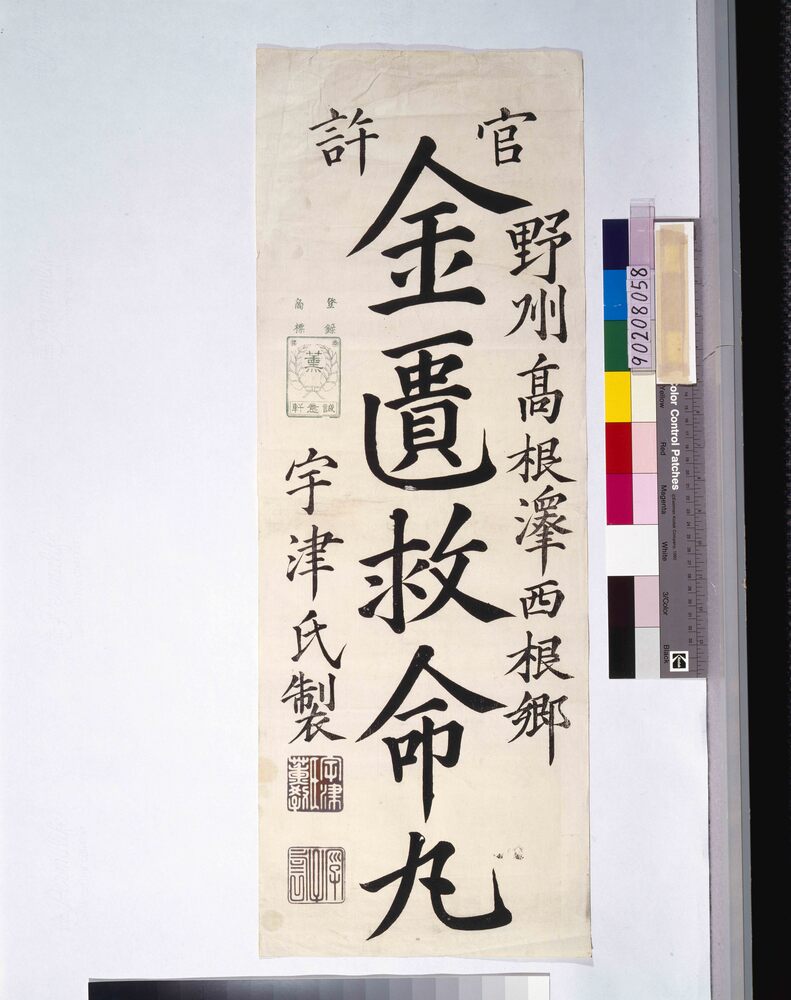 官許
野州高根澤西根郷
金匱救命丸
登録
商標
薫
誠意軒
宇津氏製
90208058
Color Control Patches
Yellow
Red
Magenta
White
3/Color
Black